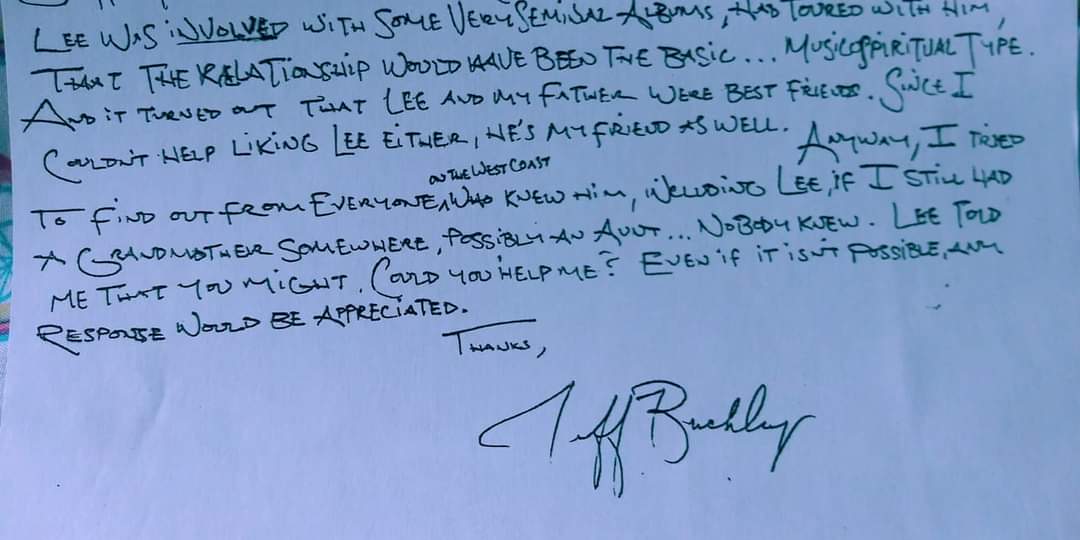 LEE WAS INVOLVED WITH SOME VERY SEMINAL ALBUMS, HAD TOURED WITH HIM,
THAT THE RELATIONSHIP WOULD HAVE BEEN THE BASIC... MUSICOSPIRITUAL TYPE.
AND IT TURNED OUT THAT LEE AND MY FATHER WERE BEST FRIENDS. SINCE I
COULDN'T HELP LIKING LEE EITHER, HE'S MY FRIEND AS WELL. ANYWAY, I TRIED
ON THE WEST COAST
TO FIND OUT FROM EVERYONE WHO KNEW HIM, INCLUDING LEE, IF I STILL HAD
A GRANDMOTHER SOMEWHERE, POSSIBLY AN AUNT... NOBODY KNEW. LEE TOLD
ME THAT YOU MIGHT. COULD YOU HELP ME? EVEN IF IT ISN'T POSSIBLE, ANY
RESPONSE WOULD BE APPRECIATED.
THANKS,
Jeff Buckley